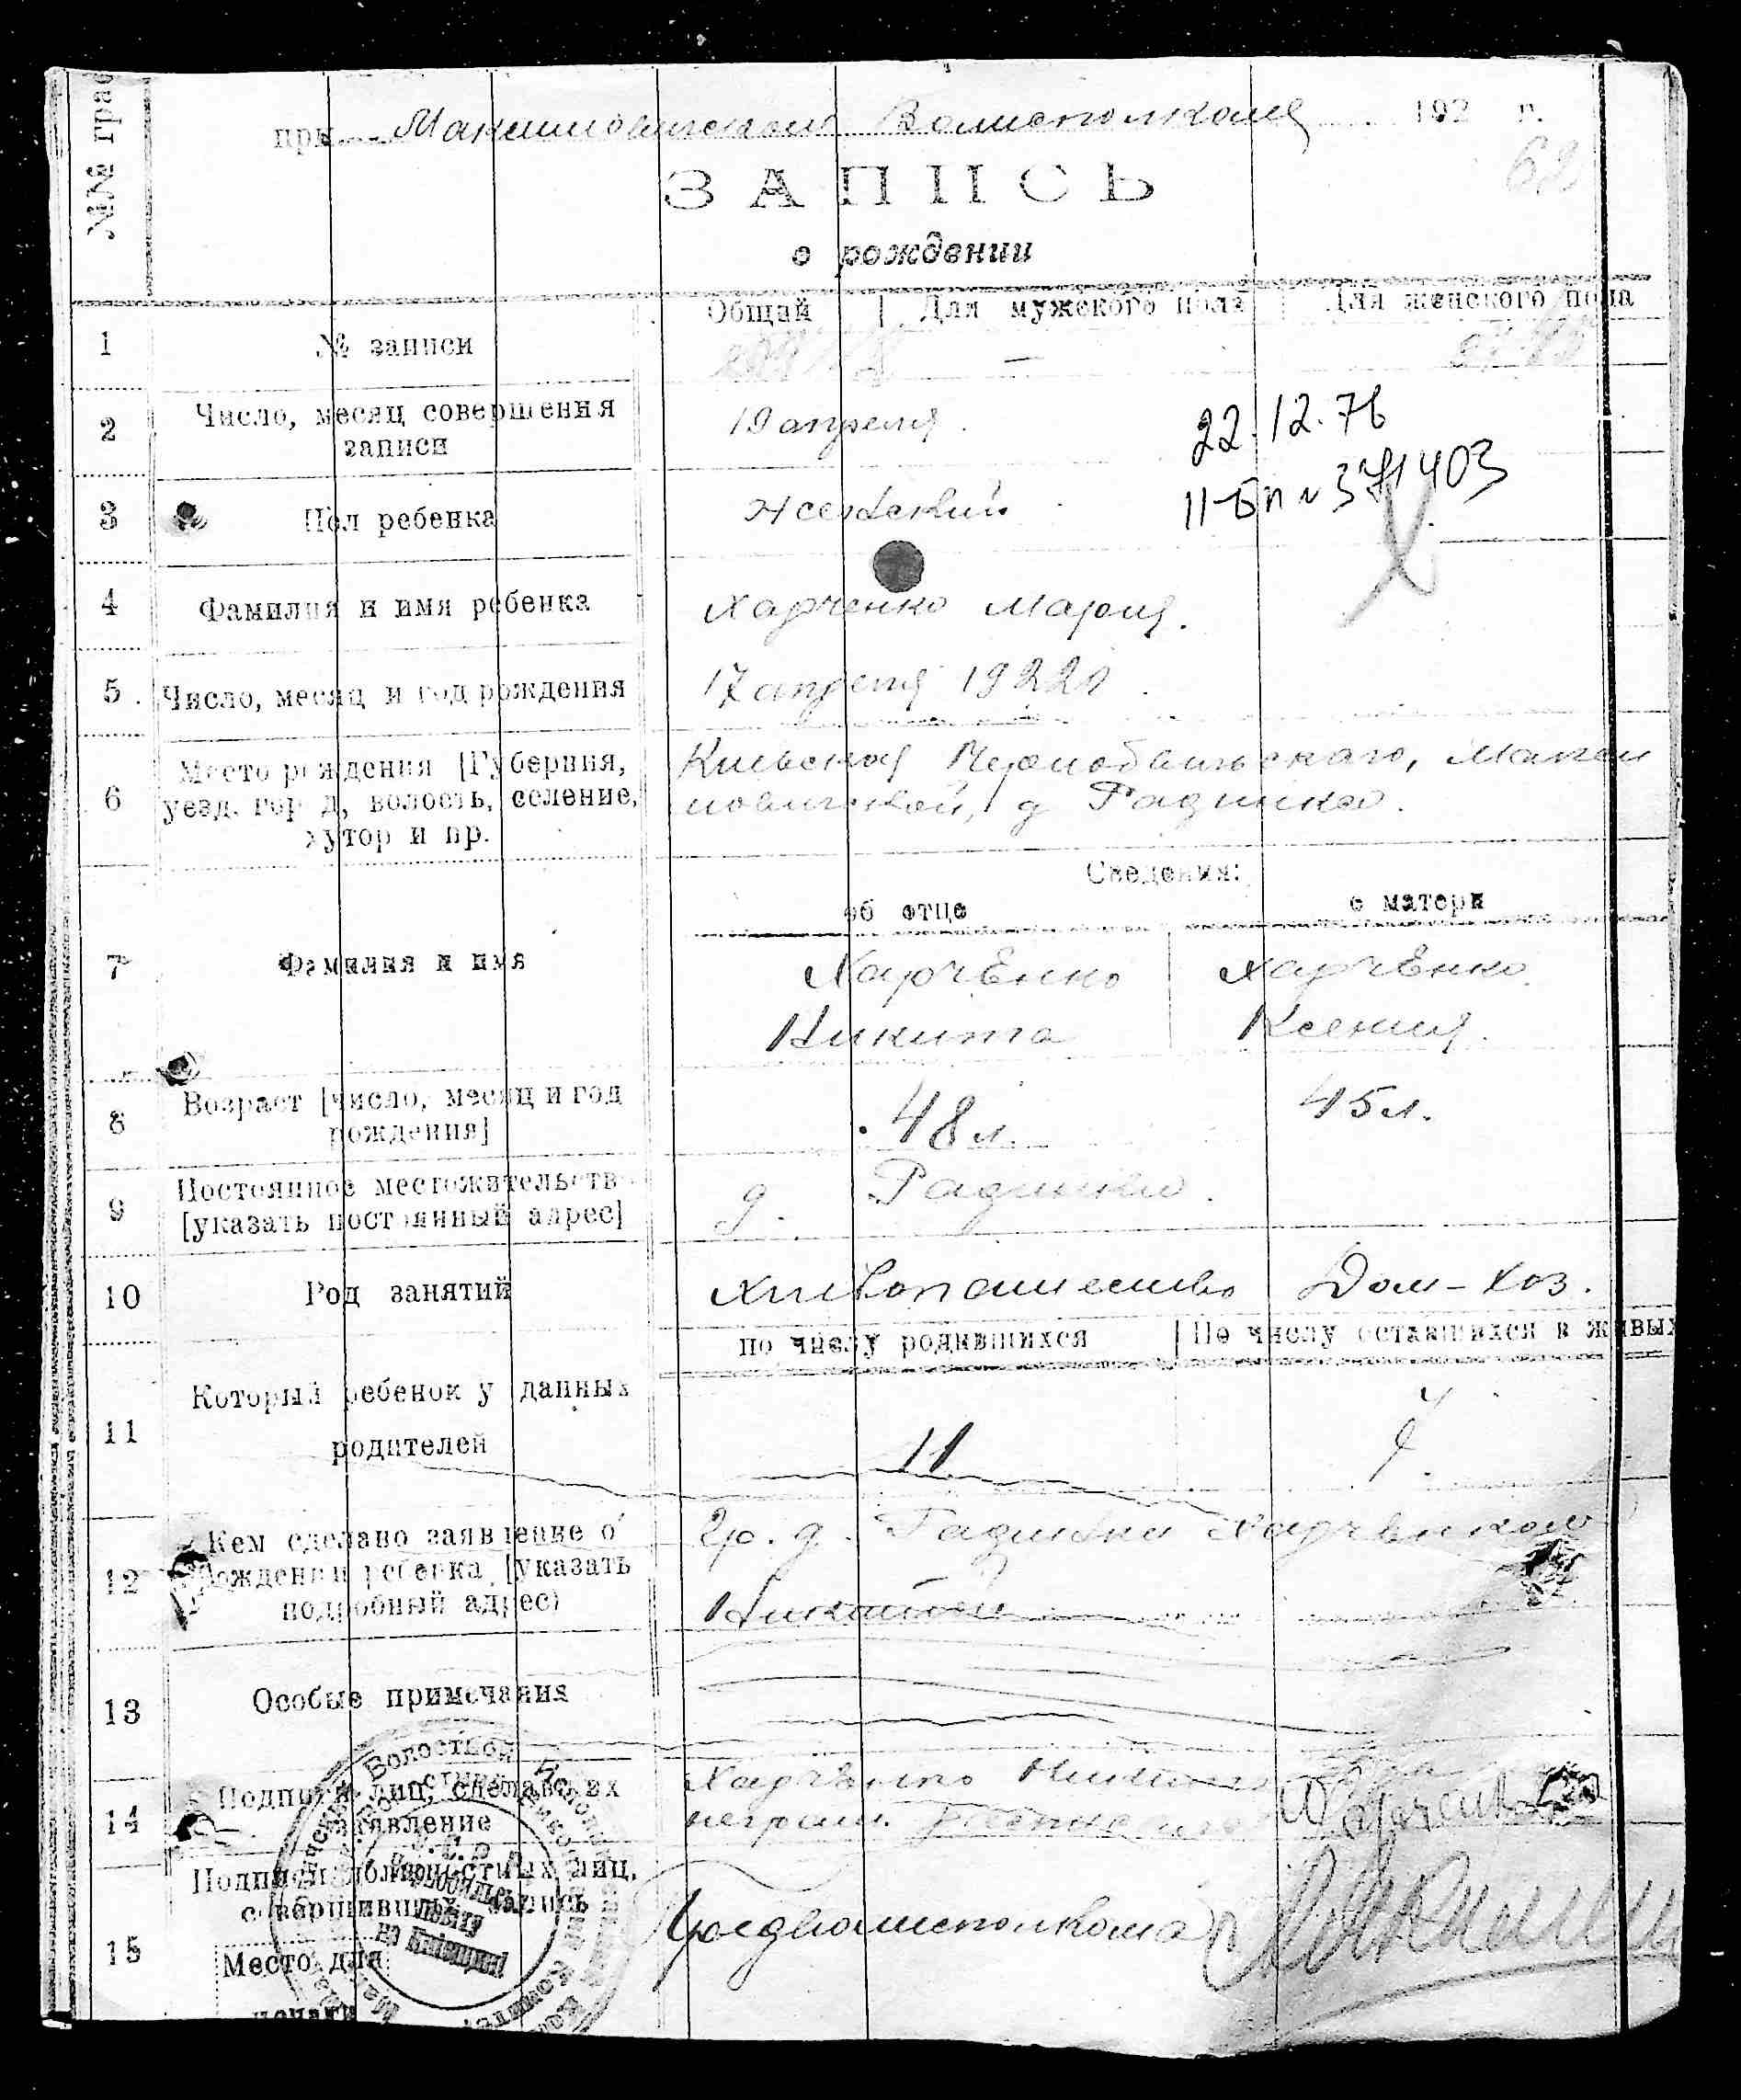 №№ граф
при Максимовичском Волисполкоме 192 г.
62
ЗАПИСЬ
о рождении
Общий Для мужского пола Для женского пола
1 № записи —
2 Число, месяц совершения записи 19 апреля.
22.12.76
II-БП № 371403
3 Пол ребенка женский
4 Фамилия и имя ребенка Харченко Мария.
5 Число, месяц и год рождения 17 апреля 1922 г.
6 Место рождения [Губерния,
уезд, город, волость, селение,
хутор и пр.
Киевская Чернобыльскаго, Макси
мовичской, д Радинка.
Сведения:
об отце о матери
7 Фамилия и имя
Харченко Харченко
Никита Ксения.
8 Возраст [число, месяц и год
рождения]
48 л. 45 л.
9 Постоянное местожительств
[указать постоянный адрес]
д. Радинка.
10 Род занятий хлебопашество Дом-хоз.
по числу родившихся По числу оставшихся в живых
11 Который ребенок у данных
родителей
11
12 Кем сделано заявление о
рождении ребенка [указать
подробный адрес)
Гр. д. Радинки Харченком
Никитой
13 Особые примечания
14 Подписи лиц, сделавших
заявление
Харченко Никита
неграм. Харченко
15 Подписи должностных лиц,
совершивших запись
Предволисполкома
Место для
печати